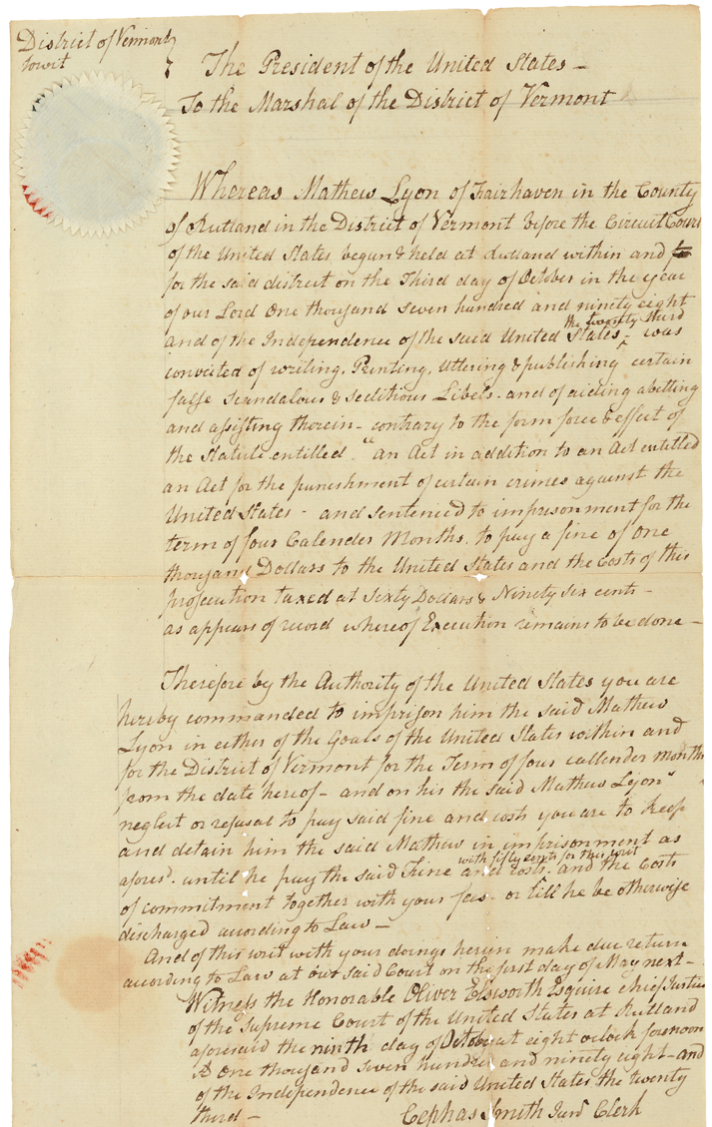 District of Vermont
towit
The President of the United States –
To the Marshal of the District of Vermont
Whereas Mathew Lyon of Fairhaven in the County
of Rutland in the District of Vermont before the Circuit Court
of the United States begun & held at Rutland within and for
for the said district on the Third day of October in the year
of our Lord One thousand seven hundred and ninety eight
and of the Independence of the said United States the twenty third – was
convicted of writing, Printing, Uttering & publishing certain
false scandalous & seditious Libels – and of aiding abetting
and assisting therein – contrary to the form force & effect of
the Statute entitled "an Act in addition to an Act entitled
an Act for the punishment of certain crimes against the
United States – and sentenced to imprisonment for the
term of four Calender Months, to pay a fine of One
thousand Dollars to the United States and the Costs of this
prosecution taxed at Sixty Dollars & Ninety Six cents –
as appears of record whereof Execution remains to be done –
Therefore by the Authority of the United States you are
hereby commanded to imprison him the said Mathew
Lyon in either of the Goals of the United States within and
for the District of Vermont for the Term of four callender months
from the date hereof – and on his the said Mathew Lyon"
neglect or refusal to pay said fine and costs you are to keep
and detain him the said Mathew in imprisonment as
afores. until he pay the said Fine and Costs with fifty cents for this writ – and the Costs
of commitment together with your fees – or till he be otherwise
discharged acording to Law –
And of this writ with your doings herein make due return
according to Law at our said Court on the first day of May next –
Witness the Honorable Oliver Elsworth Esquire chief Justice
of the Supreme Court of the United States at Rutland
aforesaid the ninth day of October at eight oclock forenoon
A One thousand seven hundred and ninety eight – and
of the Independence of the said United States the twenty
third –
Cephas Smith Junr Clerk